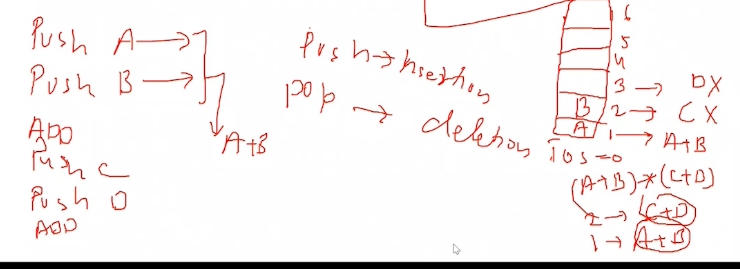 Push A →
Push B →
A+B
ADD
Push C
Push D
ADD
Push → Insertion
pop → deletion
6
5
4
3 → DX
B 2 → CX
A 1 → A+B
TOS=0
(A+B)*(C+D)
2 → C+D
1 → A+B